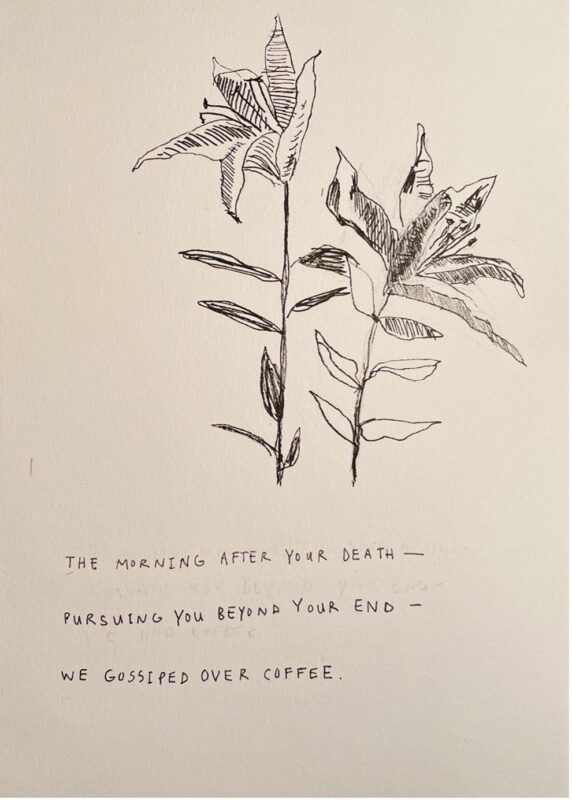 THE MORNING AFTER YOUR DEATH —
PURSUING YOU BEYOND YOUR END —
WE GOSSIPED OVER COFFEE.